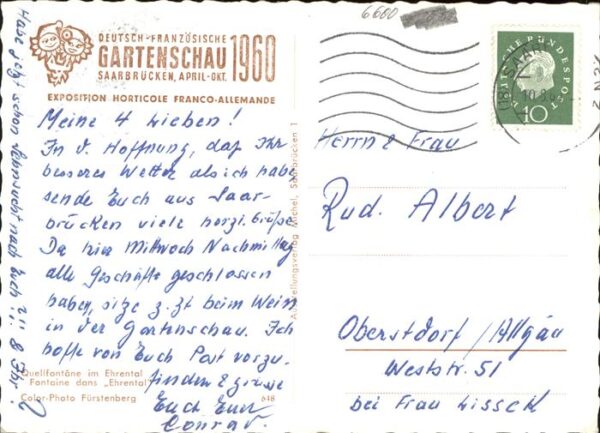 6600
DEUTSCH-FRANZÖSISCHE
GARTENSCHAU 1960
SAARBRÜCKEN, APRIL-OKT.
EXPOSITION HORTICOLE FRANCO-ALLEMANDE
Meine 4 Lieben!
In d. Hoffnung, daß Ihr
besseres Wetter als ich habt
sende Euch aus Saar-
brücken viele herzl. Grüße
Da hier Mittwoch Nachmittag
alle Geschäfte geschlossen
haben, sitze z.Zt beim Wein
in der Gartenschau. Ich
hoffe von Euch Post vorzu-
finden & grüsse
Euch Euer
Conrad.
Habe jetzt schon Sehnsucht nach Euch !!! 8 Uhr!
Quellfontäne im Ehrental
Fontaine dans "Ehrental"
Color-Photo Fürstenberg 648
Ausstellungsverlag Michel, Saarbrücken 1
DEUTSCHE BUNDESPOST
10
Herrn & Frau
Rud. Albert
Oberstdorf/Allgäu
Weststr. 51
bei Frau Lisseck